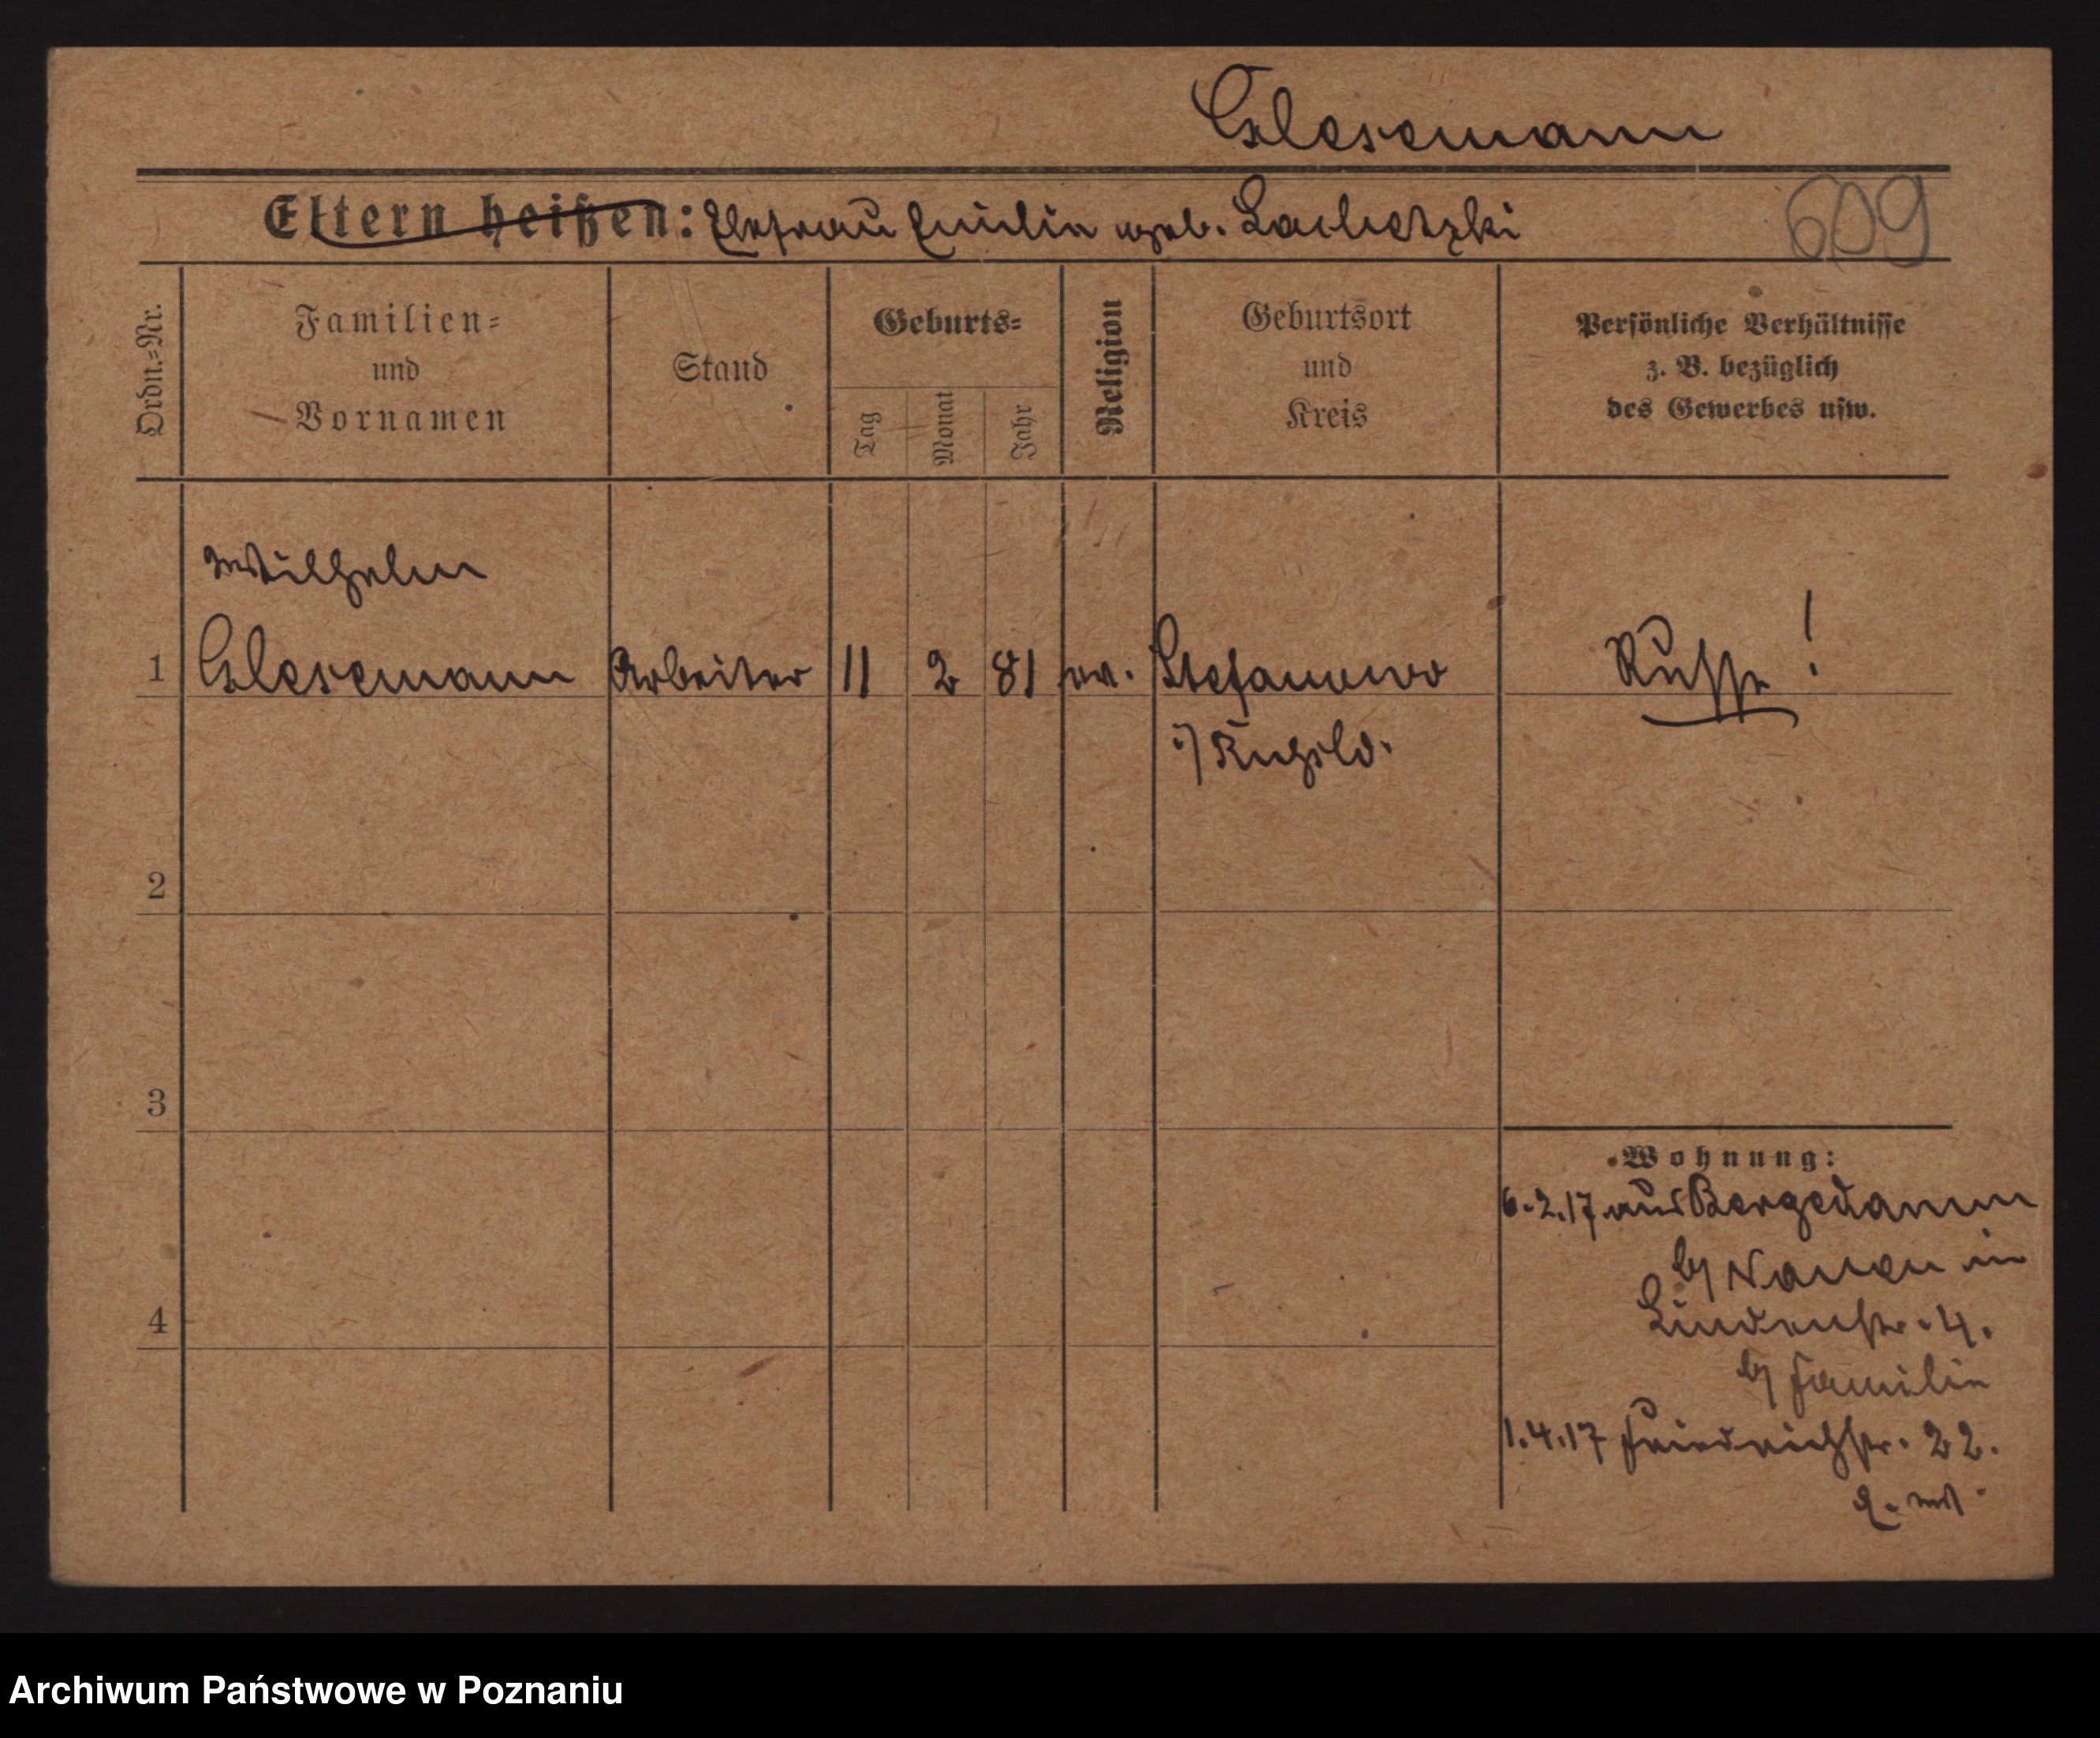 Glesemann
Eltern heißen: Ehefrau Emilie geb. Lachetzki
609
Ordn.=Nr.
Familien=
und
Vornamen
Stand
Geburts=
Tag
Monat
Jahr
Religion
Geburtsort
und
Kreis
Persönliche Verhältnisse
z. B. bezüglich
des Gewerbes usw.
Wilhelm
1 Glesemann Arbeiter 11 2 81 ev. Stefanowo Russe!
i/ Rußld.
2
3
4
Wohnung:
6.2.17 aus Bergedamm
b/ Nauen in
Lindenstr. 4.
b/ Familie
1.4.17 Friedrichstr. 22.
Archiwum Państwowe w Poznaniu